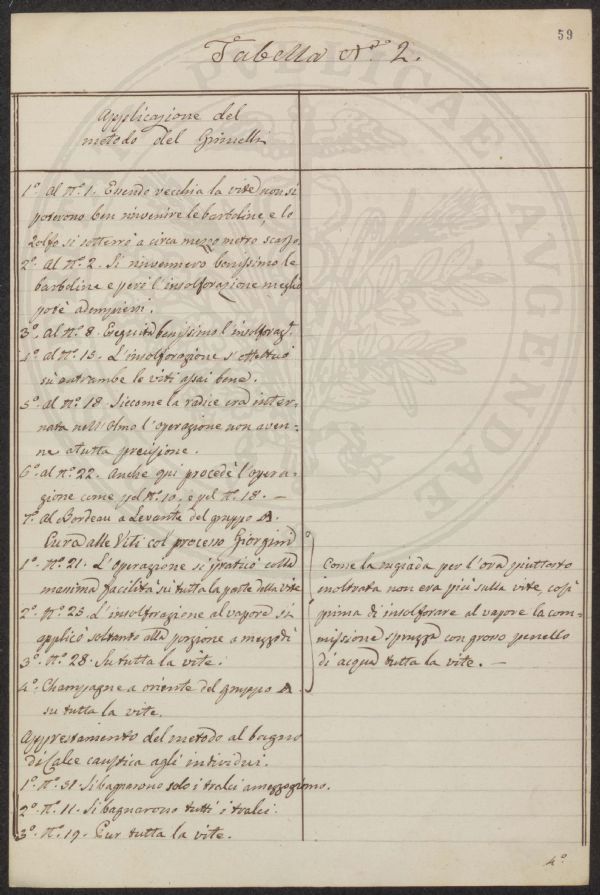 59
Tabella N.º 2.
Applicazione del
metodo del Grimelli
1º. Al Nº. 1. Essendo vecchia la vite non si
poterono ben rinvenire le barboline, e lo
Zolfo si sotterrò a circa mezzo metro scarso.
2º. Al Nº. 2. Si rinvennero benissimo le
barboline e però l'insolforazione meglio
potè adempiersi.
3º. Al Nº. 8. Eseguita benissimo l'insolforazº.
4º. Al Nº. 15. L'insolforazione s'effettuò
su entrambe le viti assai bene.
5º. Al Nº. 18. Siccome la radice era inter-
nata nell'Olmo l'operazione non aven-
ne a tutta precisione.
6º. Al Nº. 22. Anche qui procedè l'opera-
zione come pel Nº. 10. e pel Nº. 18. —
7º. Al Bordeau a Levante del gruppo A.
Cura alle Viti col processo Giorgini
1º. Nº. 21. L'operazione si praticò colla
massima facilità su tutta la parte della vite
2º. Nº. 25. L'insolforazione al vapore si
applicò soltanto alla porzione a mezzodì
3º. Nº. 28. Su tutta la vite.
4º. Champagne a oriente del gruppo A.
su tutta la vite.
Come la rugiada per l'ora piuttosto
inoltrata non era più sulla vite, così
prima di insolforare al vapore la com-
missione spruzzò con grosso penello
di acqua tutta la vite. —
Apprestamento del metodo al bagno
di Calce caustica agli individui.
1º. Nº. 31. Si bagnarono solo i tralci a mezzogiorno.
2º. Nº. 11. Si bagnarono tutti i tralci.
3º. Nº. 19. Pur tutta la vite.
4º.
PUBLICAE
AUGENDAE